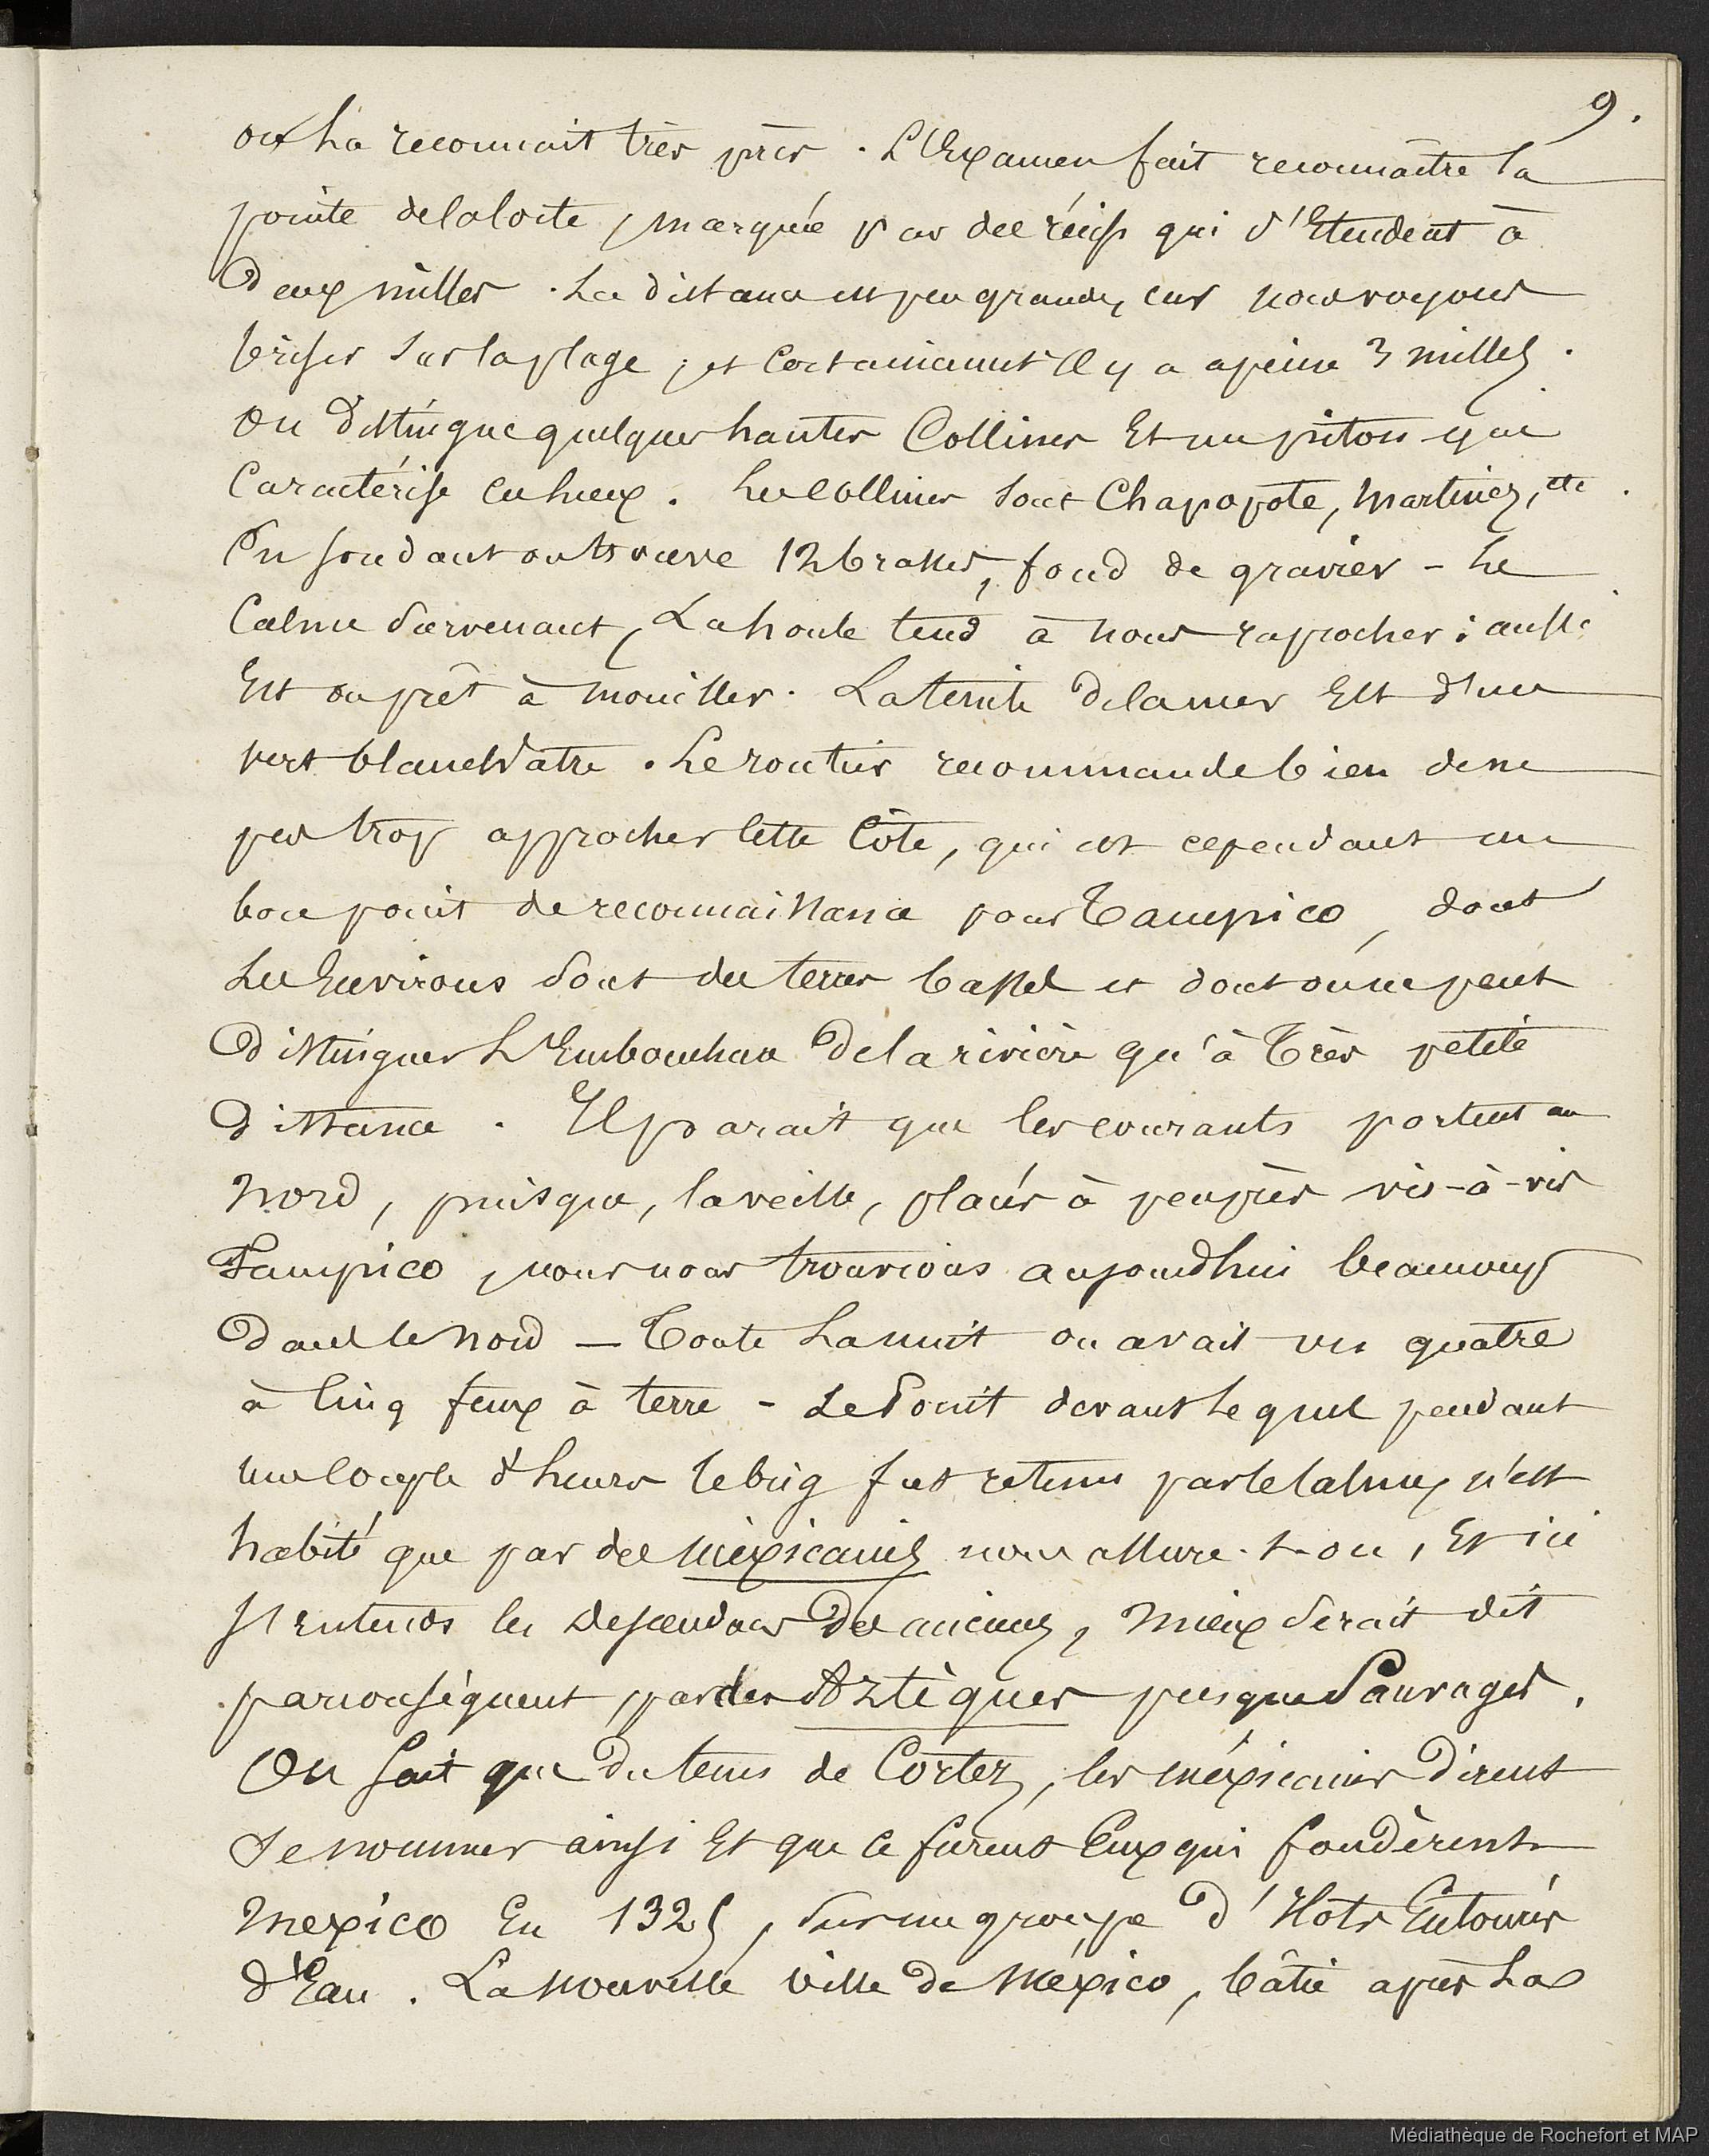 9.
on la reconnait très près. L'Examen fait reconnaître la
pointe de la côte, marquée par des récifs qui s'Etendent à
Deux milles. La distance est peu grande, car nous voyons
briser sur la plage, et certainement Il y a apeine 3 milles.
On distingue quelques hautes Collines Et un piton qui
Caractérise ces lieux. Les collines sont Chapopote, Martinez, etc.
En sondant on trouve 12 brasses, fond de gravier - Le
Calme survenant, La houle tend à nous raprocher; aussi
Est on prêt à mouiller. La teinte de la mer Est d'un
vert blanchâtre. Le routier recommande bien de ne
pas trop approcher cette Côte, qui est cependant un
bon point de reconnaissance pour Tampico, dont
Les Environs sont des terres basses et dont on ne peut
Distinguer L'Embouchure de la rivière qu'à Très petite
Distance. Il parait que les courants portent au
Nord, puisque, la veille, placés à peu près vis-à-vis
Tampico, nous nous trouvions aujourd'hui beaucoup
Dans le Nord - Toute La nuit on avait vu quatre
à Cinq feux à terre - Le Point devant lequel pendant
une Couple d'heures le brig fut retenu par le Calme, n'est
habité que par des Méxicains nous assure-t-on, Et ici
J'entends les descendans des anciens, Mieux serait dit
par conséquent, par des Aztèques presque Sauvages.
On sait que du tems de Cortez, les méxicains dirent
se nommer ainsi Et que ce furent Eux qui fondèrent
Mexico En 1325, sur un groupe d'Ilots Entourés
d'Eau. La nouvelle ville de México, bâtie après La
Médiathèque de Rochefort et MAP